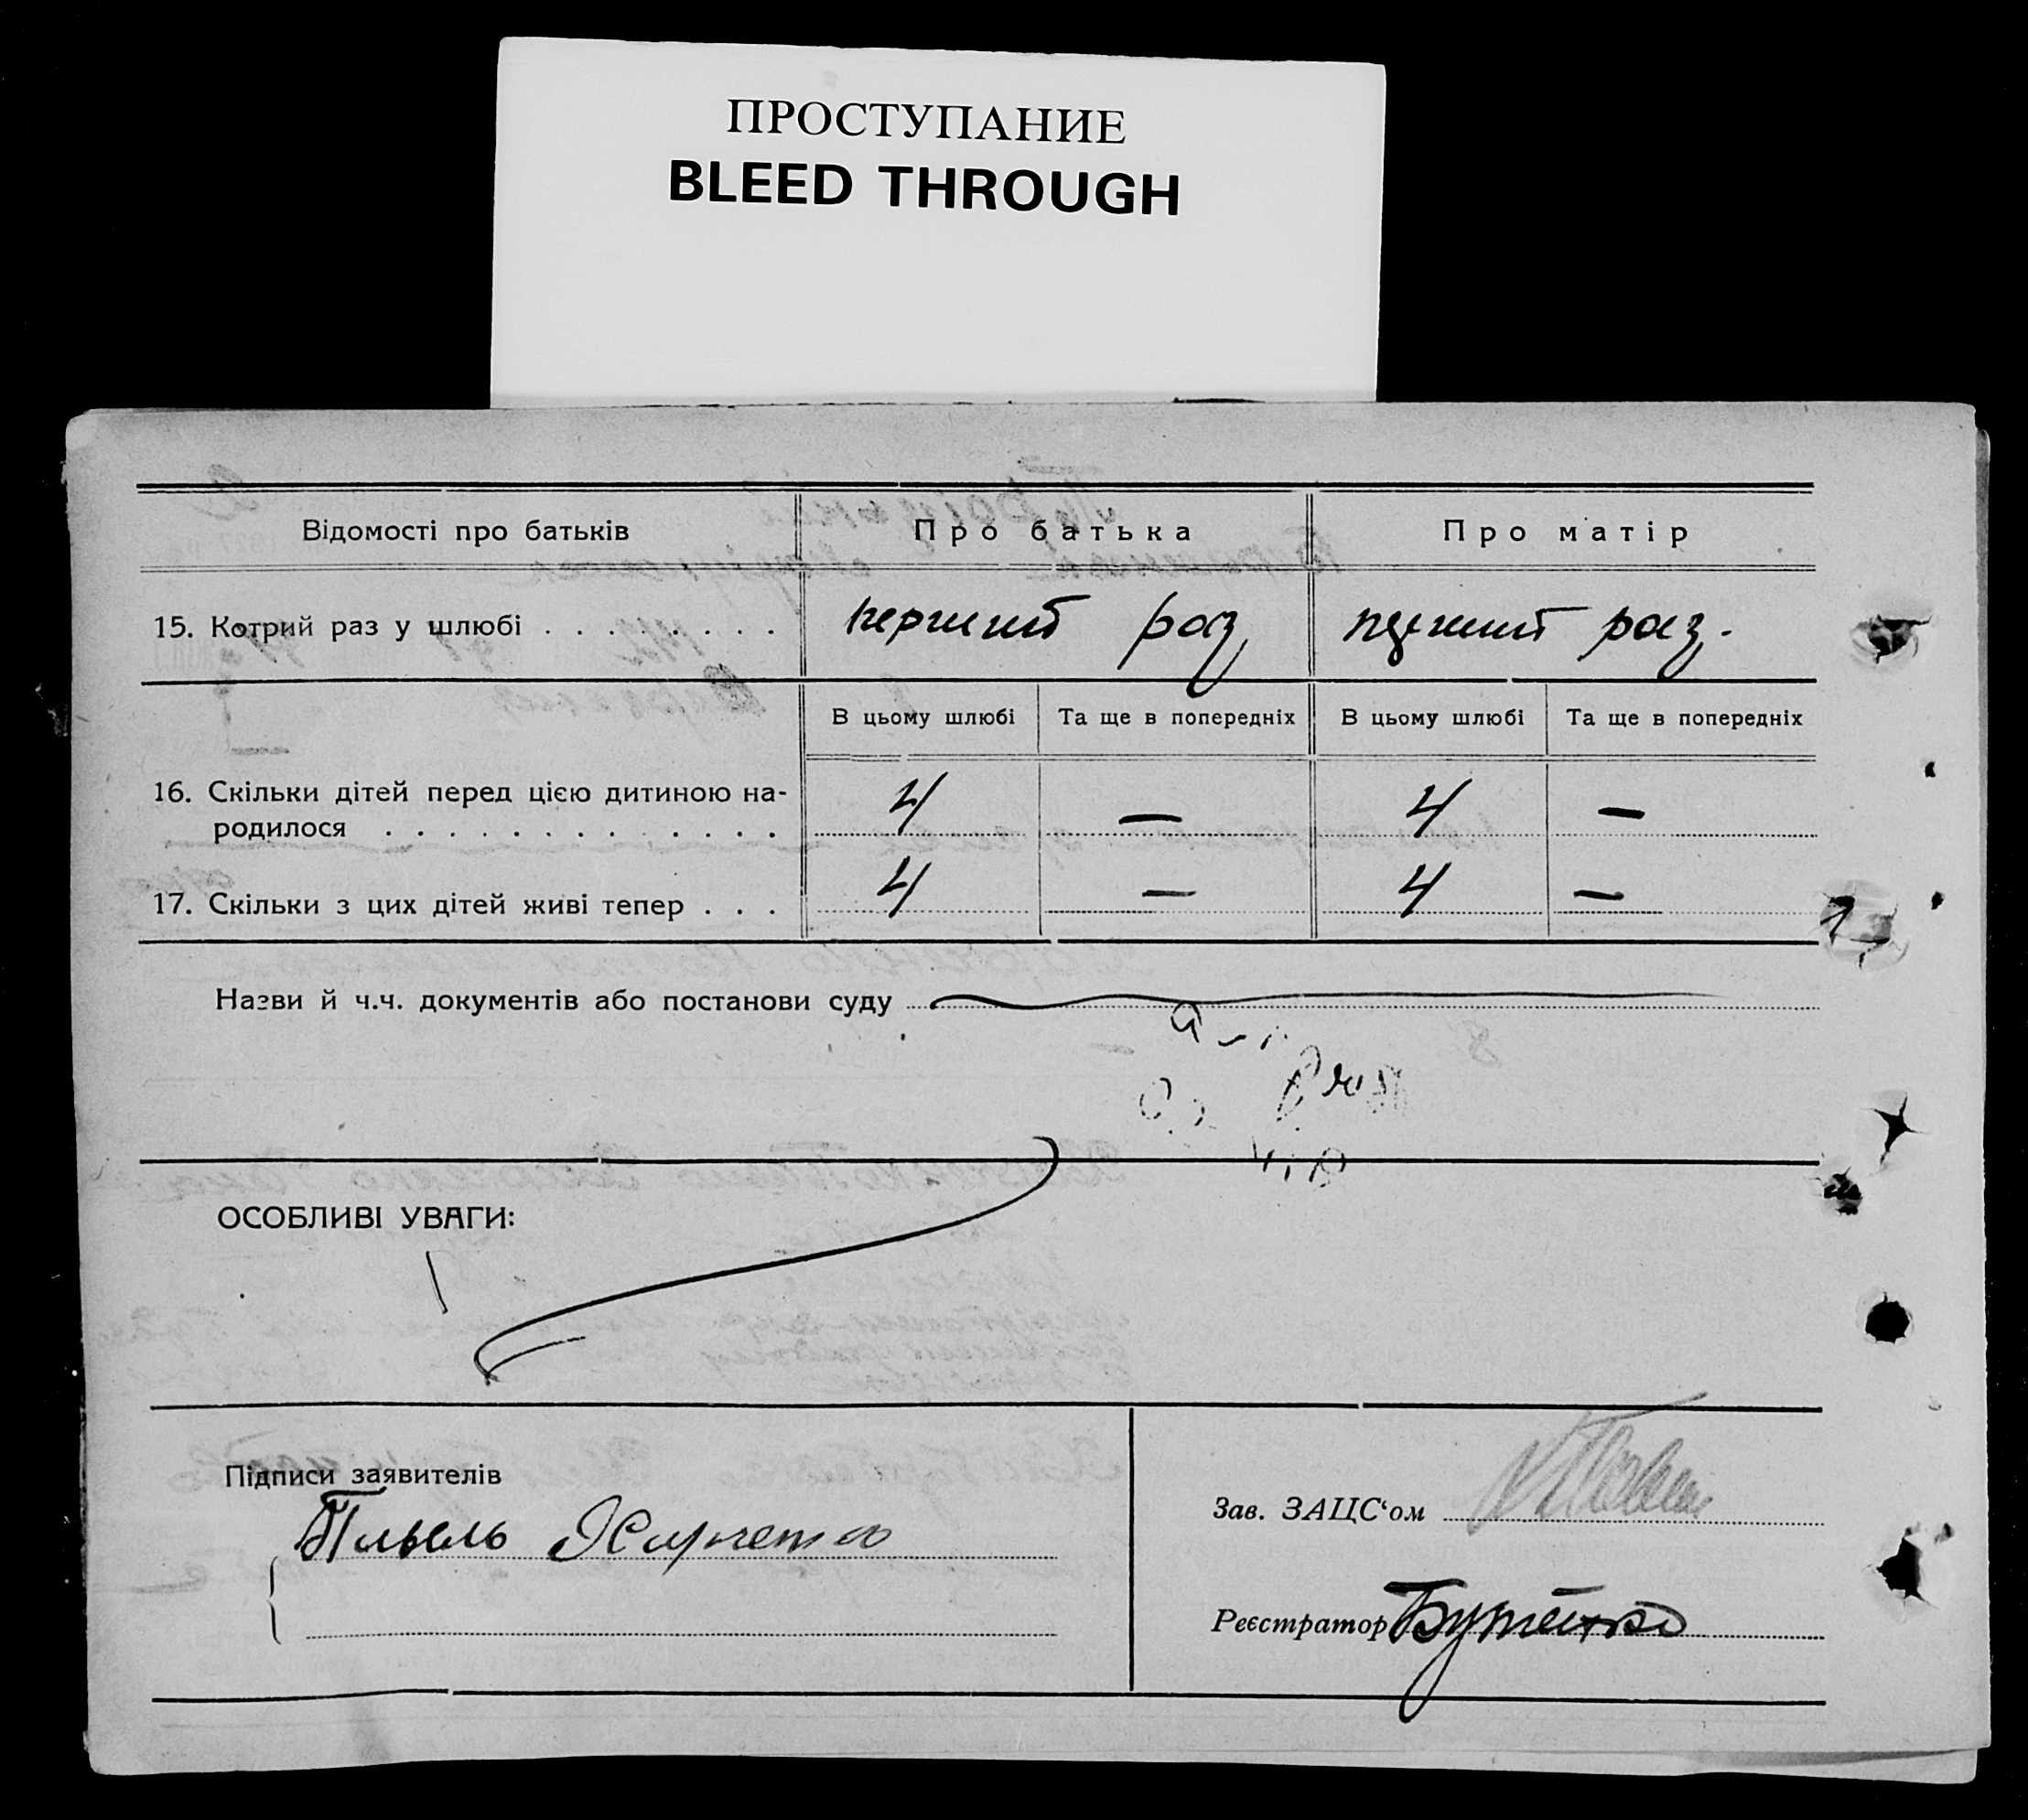 ПРОСТУПАНИЕ
BLEED THROUGH
Відомості про батьків Про батька Про матір
15. Котрий раз у шлюбі . . . . . . . . перший раз перший раз.
В цьому шлюбі Та ще в попередніх В цьому шлюбі Та ще в попередніх
16. Скільки дітей перед цією дитиною на-
родилося . . . . . . . . . . . . . 4 — 4 —
17. Скільки з цих дітей живі тепер . . . 4 — 4 —
Назви й ч.ч. документів або постанови суду
ОСОБЛИВІ УВАГИ:
Підписи заявителів
Зав. ЗАЦС‘ом
Реєстратор Бутенко